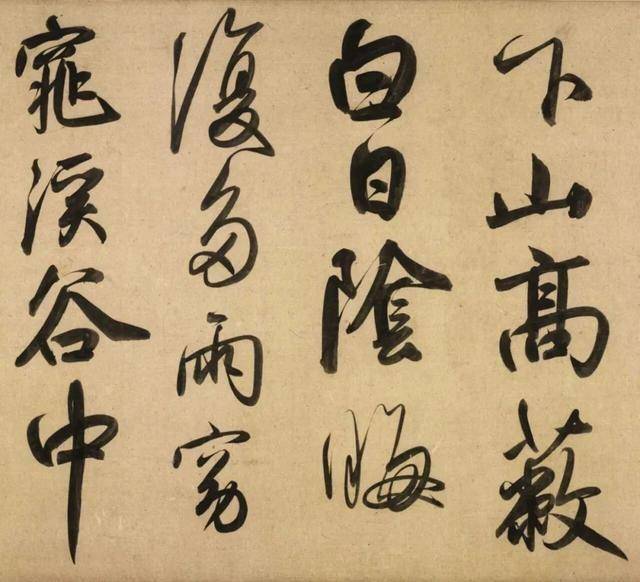 下山高蔽
白日陰晦
復多雨窈
窕溪谷中